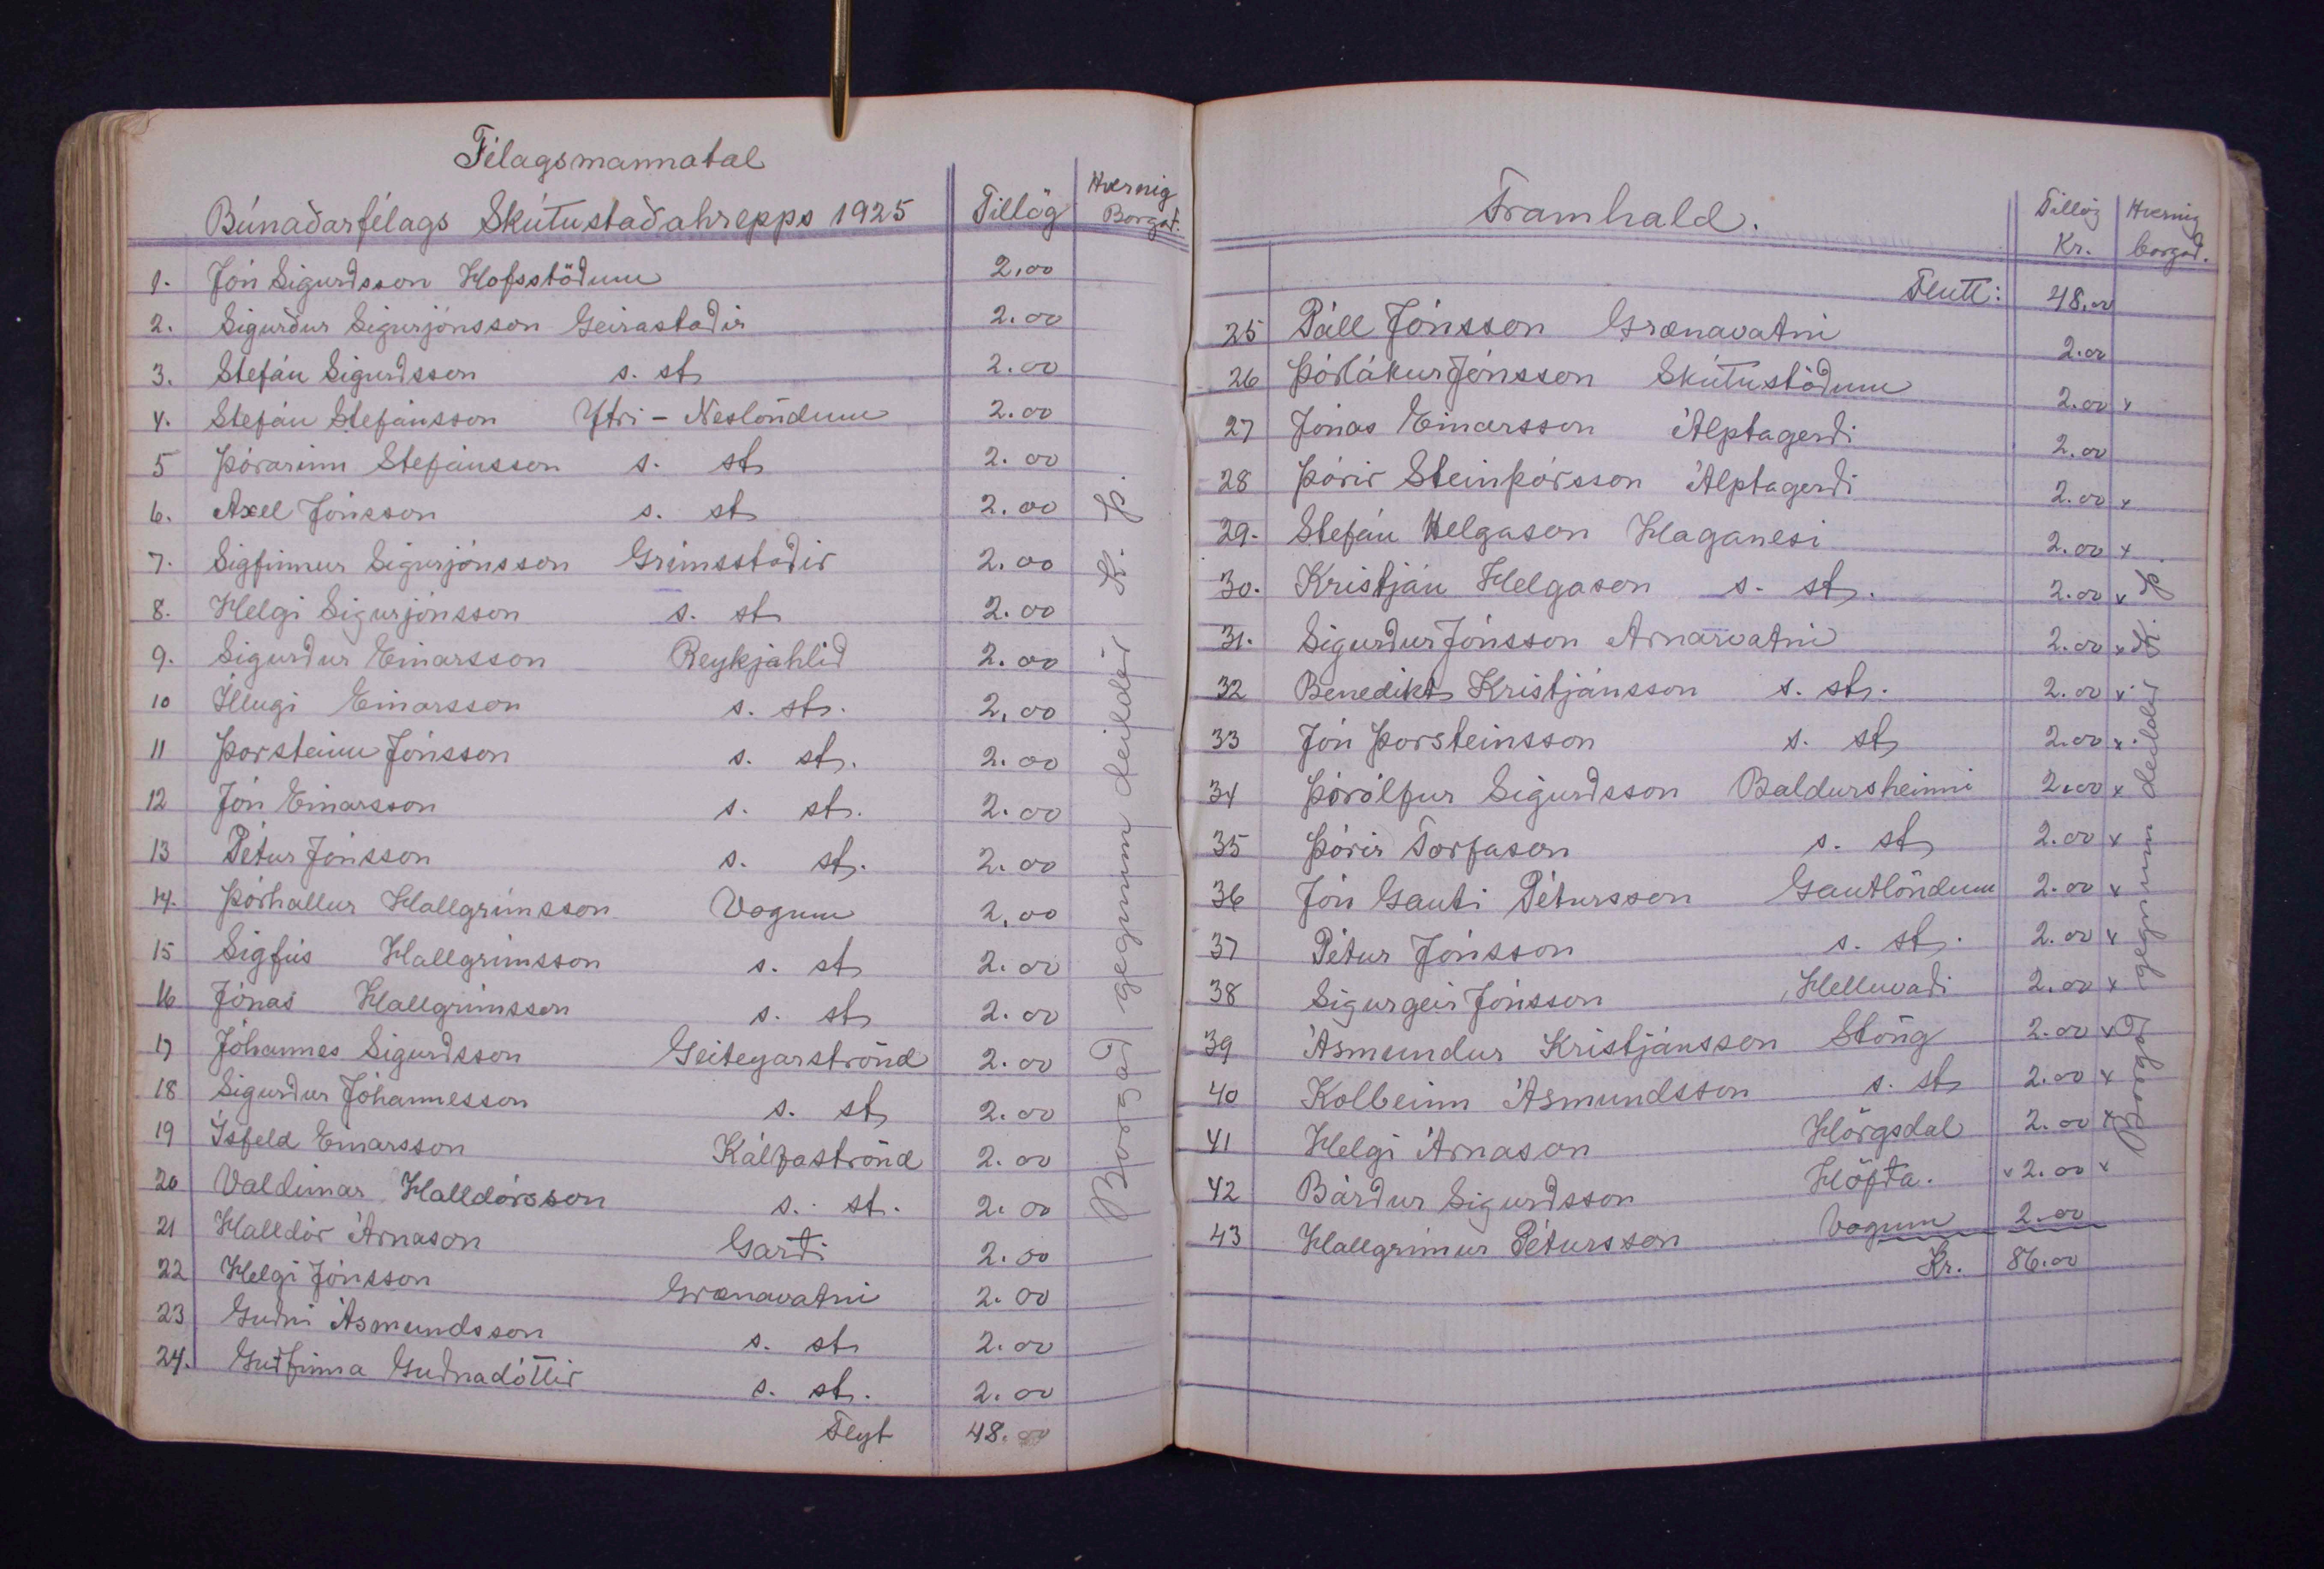 Félagsmannatal
Búnaðarfélags Skútustaðahrepps 1925 Tillög Hvernig Borgað.
1. Jón Sigurdsson Hofsstöðum 2,00
2. Sigurður Sigurjónsson Geirastaðir 2.00
3. Stefán Sigurdsson s. st 2.00
4. Stefán Stefánsson Ytri-Neslöndum 2.00
5 Þórarinn Stefánsson s. st 2.00
6. Axel Jónsson s. st 2.00
7. Sigfinnur Sigurjónsson Grímsstaðir 2.00
8. Helgi Sigurjónsson s. st 2.00
9. Sigurdur Einarsson Reykjahlíd 2.00
10 Illugi Einarsson s. st. 2,00
11 Þorsteinn Jónsson s. st. 2.00
12 Jón Einarsson s. st. 2.00
13 Pétur Jónsson s. st. 2.00
14. Þórhallur Hallgrímsson Vogum 2,00
15 Sigfús Hallgrímsson s. st 2.00
16 Jónas Hallgrímsson s. st 2.00
17 Jóhannes Sigurdsson Geiteyarströnd 2.00
18 Sigurdur Jóhannesson s. st 2.00
19 Ísfeld Einarsson Kálfaströnd 2.00
20 Valdimar Halldórsson s. st. 2.00
21 Halldór Árnason Garði 2.00
22 Helgi Jónsson Grænavatni 2.00
23 Gudni Ásmundsson s. st 2.00
24. Guðfinna Gudnadóttir s. st. 2.00
Flyt 48.00
Borgað gegnum deildir K. Þ.
Framhald. Tillög Kr. Hvernig borgad.
Flutt: 48.00
25 Páll Jónsson Grænavatni 2.00
26 Þórlákur Jónsson Skútustöðum 2.00 x
27 Jónas Einarsson Álptagerði 2.00
28 Þórir Steinþórsson Álptagerði 2.00 x
29. Stefán Helgason Haganesi 2.00 x
30. Kristján Helgason s. st. 2.00 x
31. Sigurður Jónsson Arnarvatni 2.00 x
32 Benedikt Kristjánsson s. st. 2.00 x
33 Jón Þorsteinsson s. st 2.00 x
34 Þórólfur Sigurdsson Baldursheimi 2.00 x
35 Þórir Torfason s. st 2.00 x
36 Jón Gauti Pétursson Gautlöndum 2.00 x
37 Pétur Jónsson s. st. 2.00 x
38 Sigurgeir Jónsson Helluvaði 2.00 x
39 Ásmundur Kristjánsson Stöng 2.00 x
40 Kolbeinn Ásmundsson s. st 2.00 x
41 Helgi Árnason Hörgsdal 2.00 x
42 Bárdur Sigurdsson Höfða. x 2.00 x
43 Hallgrímur Pétursson Vogum 2.00
Kr. 86.00
Borgað gegnum deildir K. Þ.